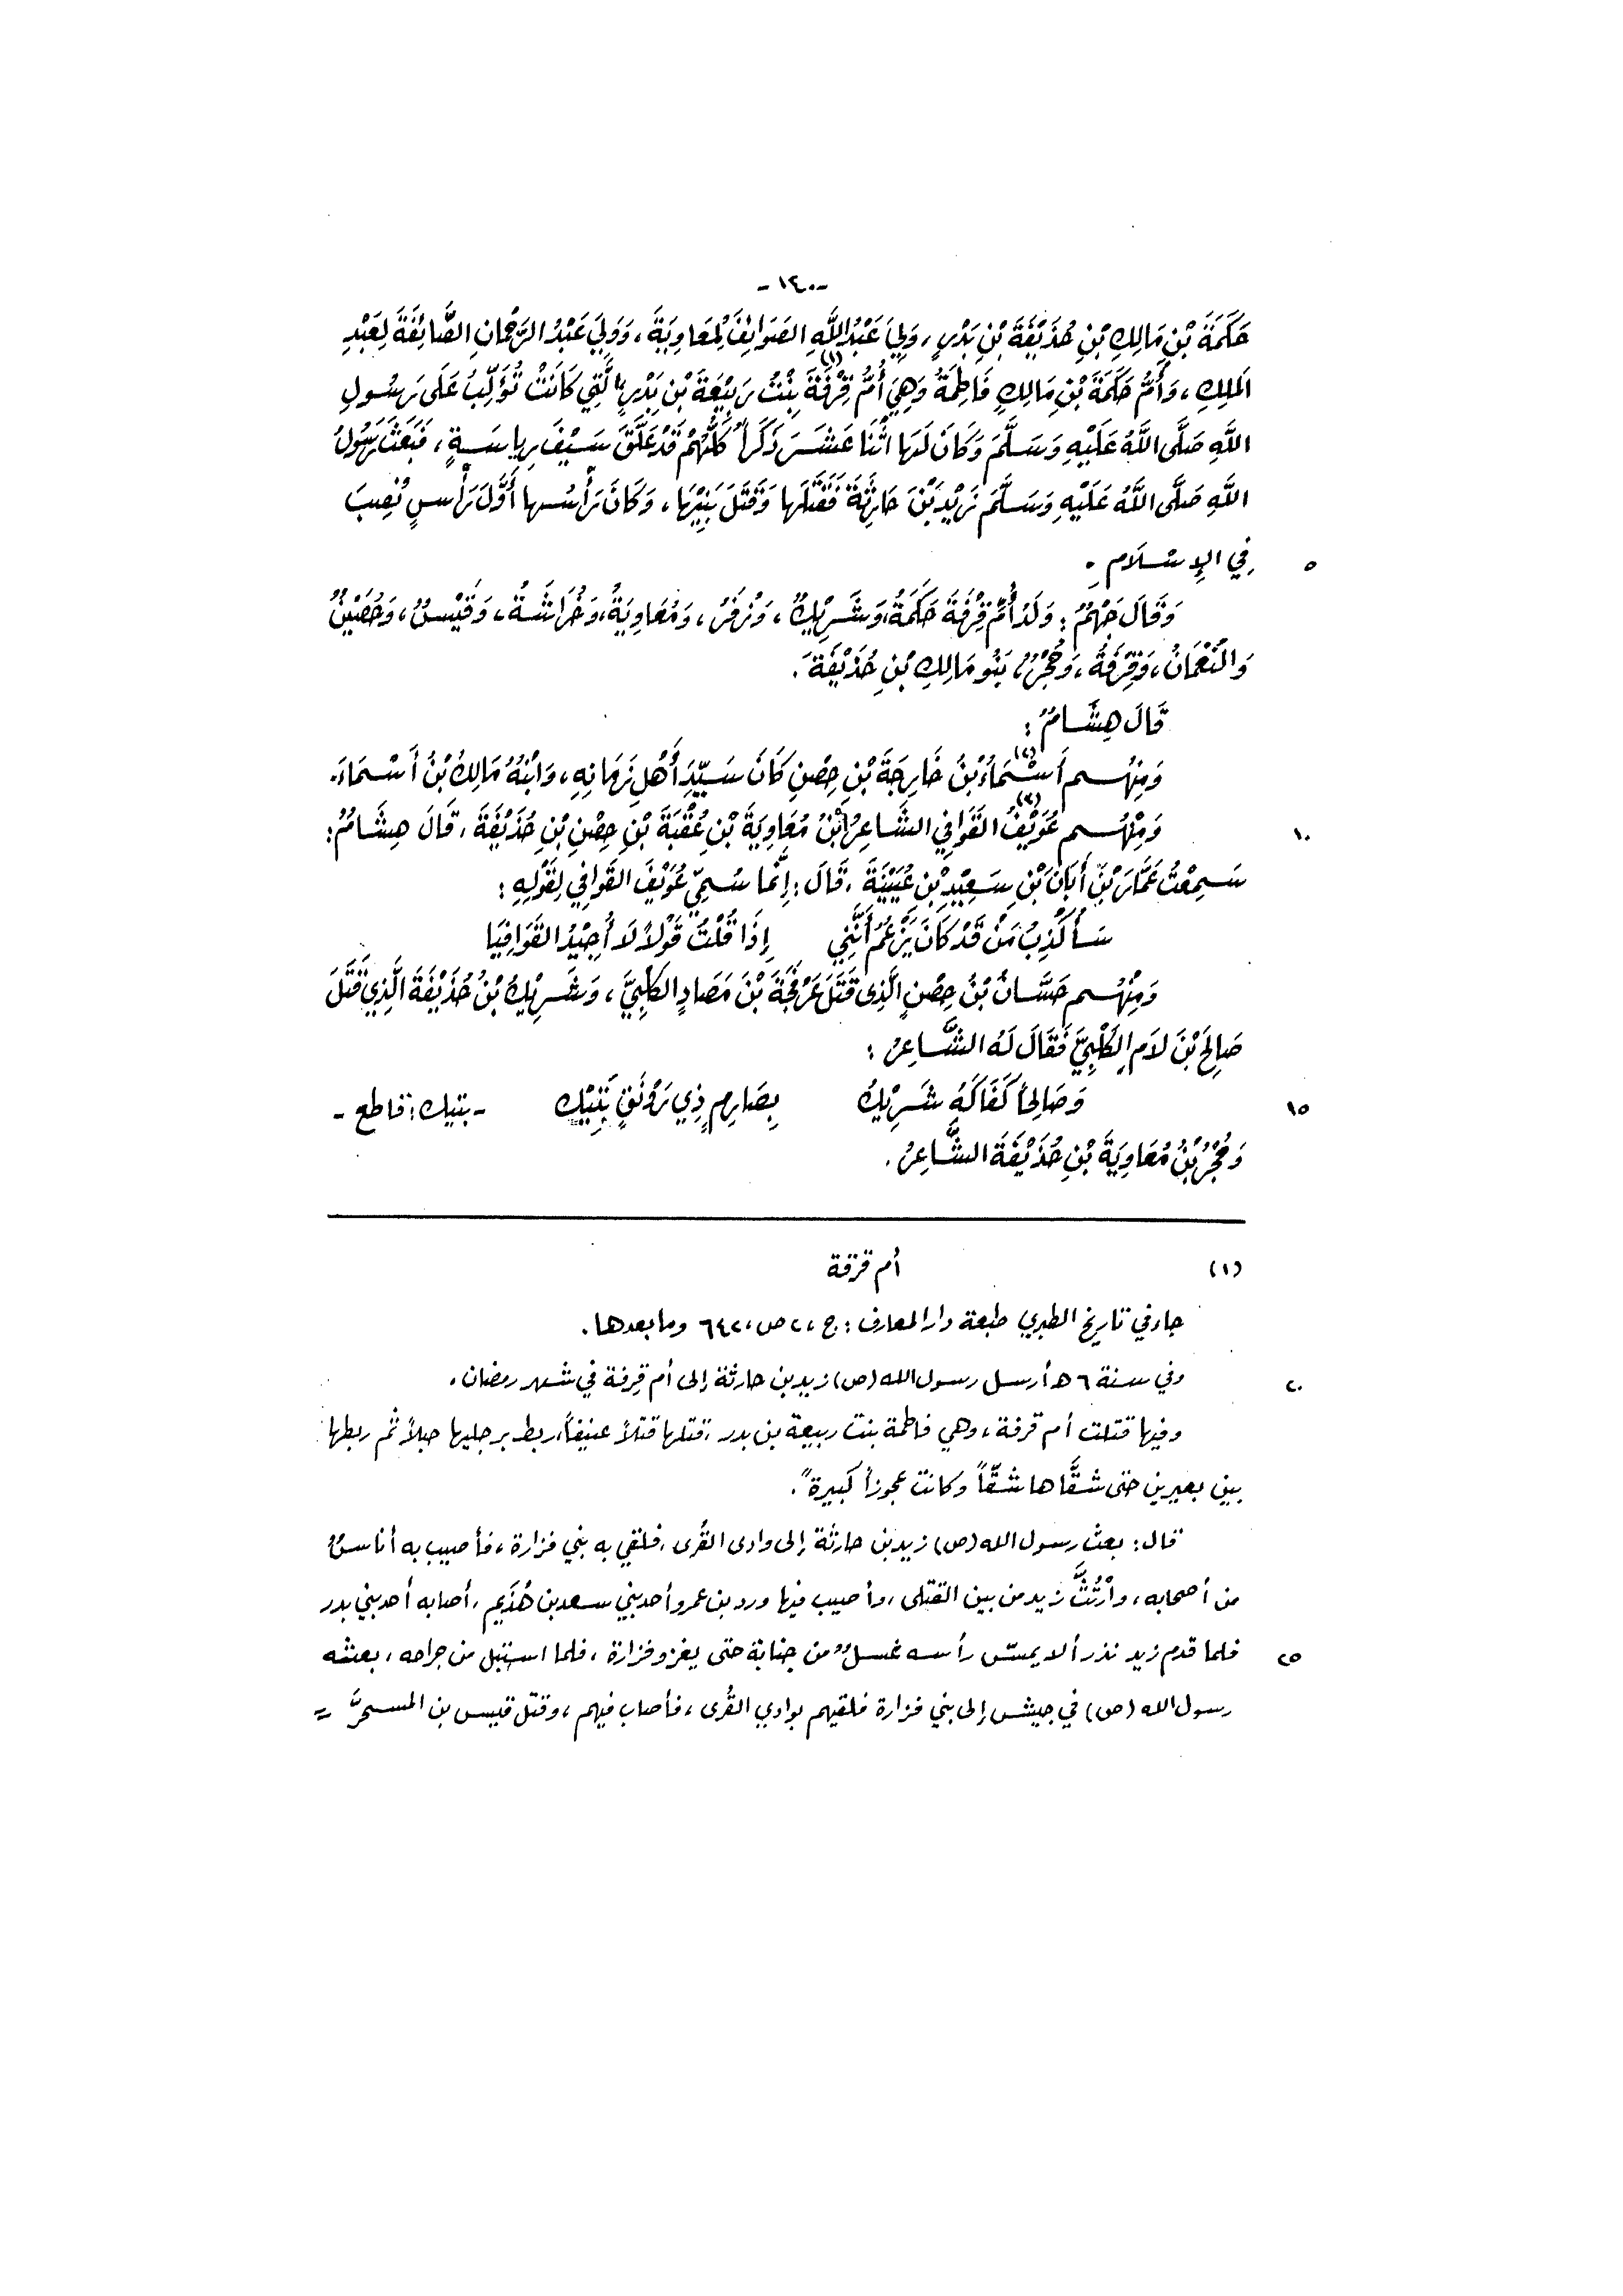 -١٤٠-
حَكَمَةَ بْنِ مَالِكِ بْنِ حُذَيْفَةَ بْنِ بَدْرٍ، وَلِيَ عَبْدُ اللَّهِ الصَوَائِفَ لِمُعَاوِيَةَ، وَوَلِيَ عَبْدُ الرَّحْمَانِ الصَّائِفَةَ لِعَبْدِ
المَلِكِ، وَأُمُّ حَكَمَةَ بْنِ مَالِكٍ فَاطِمَةُ وَهِيَ أُمُّ قِرْفَةَ (١) بِنْتُ رَبِيْعَةَ بْنِ بَدْرٍ الَّتِي كَانَتْ تُؤَلِّبُ عَلَى رَسُولِ
اللَّهِ صَلَّى اللَّهُ عَلَيْهِ وَسَلَّمَ وَكَانَ لَهَا اثْنَا عَشَرَ ذَكَرَاً كُلُّهُمْ قَدْ عَلَّقَ سَيْفَ رِيَاسَةٍ، فَبَعَثَ رَسُولُ
اللَّهِ صَلَّى اللَّهُ عَلَيْهِ وَسَلَّمَ زَيْدَ بْنَ حَارِثَةَ فَقَتَلَهَا وَقَتَلَ بَنِيْهَا، وَكَانَ رَأْسُها أَوَّلَ رَأْسٍ نُصِبَ
٥ فِي الإِسْلَامِ.
وَقَالَ جَهْمٌ: وَلَدَ أُمُّ قِرْفَةَ حَكَمَةُ، وَشَرِيْكٌ، وَزُفَرُ، وَمُعَاوِيَةُ، وَخُرَاشَةُ، وَقَيْسٌ، وَحُصَيْنٌ
وَالنُّعْمَانُ، وَقِرْفَةُ، وَحُجْرٌ، بَنُو مَالِكِ بْنِ حُذَيْفَةَ.
قَالَ هِشَامٌ:
وَمِنْهُم أَسْمَاءُ (٢) بْنُ خَارِجَةَ بْنِ حِصْنٍ كَانَ سَيِّدَ أَهْلِ زَمَانِهِ، وَابْنُهُ مَالِكُ بْنُ أَسْمَاءَ.
١٠ وَمِنْهُم عُوَيْفُ (٣) القَوَافِي الشَّاعِرُ ابْنُ مُعَاوِيَةَ بْنِ عُقْبَةَ بْنِ حِصْنِ بْنِ حُذَيْفَةَ، قَالَ هِشَامٌ:
سَمِعْتُ عَمَّارَ بْنَ أَبَانَ بْنِ سَعِيْدِ بْنِ عُيَيْنَةَ، قَالَ: إِنَّمَا سُمِّيَ عُوَيْفَ القَوَافِي لِقَوْلِهِ:
سَأُكْذِبُ مَنْ قَدْ كَانَ يَزْعُمُ أَنَّنِي إِذَا قُلْتُ قَوْلاً لَا أُجِيْدُ القَوَافِيَا
وَمِنْهُم حَسَّانُ بْنُ حِصْنٍ الَّذِى قَتَلَ عَرْفَجَةَ بْنَ مَصَادٍ الكَلْبِيَّ، وَشَرِيْكُ بْنُ حُذَيْفَةَ الَّذِي قَتَلَ
صَالِحَ بْنَ لَأمٍ الكَلْبِيَّ فَقَالَ لَهُ الشَّاعِرُ:
١٥ وَصَالِحَاً كَفَاكَهُ شَرِيْكُ بِصَارِمٍ ذِي رَوْنَقٍ بَتِيْكِ -بتيك: قاطع-
وَحُجْرُ بْنُ مُعَاوِيَةَ بْنِ حُذَيْفَةَ الشَّاعِرُ.
(١) أم قرفة
جاء في تاريخ الطبري طبعة دار المعارف: ج، ٢ ص، ٦٤٢ وما بعدها.
٢٠ وفي سنة ٦ هـ أرسل رسول الله (ص) زيد بن حارثة إلى أم قِرفة في شهر رمضان.
وفيها قتلت أم قرفة، وهي فاطمة بنت ربيعة بن بدر، قتلها قتلاً عنيفاً، ربط برجليها حبلاً ثم ربطها
بين بعيرين حتى شقَّاها شقّاً وكانت عجوزاً كبيرةً.
قال: بعث رسول الله (ص) زيد بن حارثة إلى وادى القُرى، فلقي به بني فزارة، فأصيب به أناسٌ
من أصحابه، وارْتُثَّ زيد من بين القتلى، وأصيب فيها ورد بن عمرو أحد بني سعد بن هُذَيم، أصابه أحد بني بدر
٢٥ فلما قدم زيد نذر ألا يمسّ رأسه غسلٌ من جنابة حتى يغزو فزارة، فلما استبل من جراحه، بعثه
رسول الله (ص) في جيش إلى بني فزارة فلقيهم بوادي القُرى، فأصاب فيهم، وقتل قيس بن المسحرَّ =